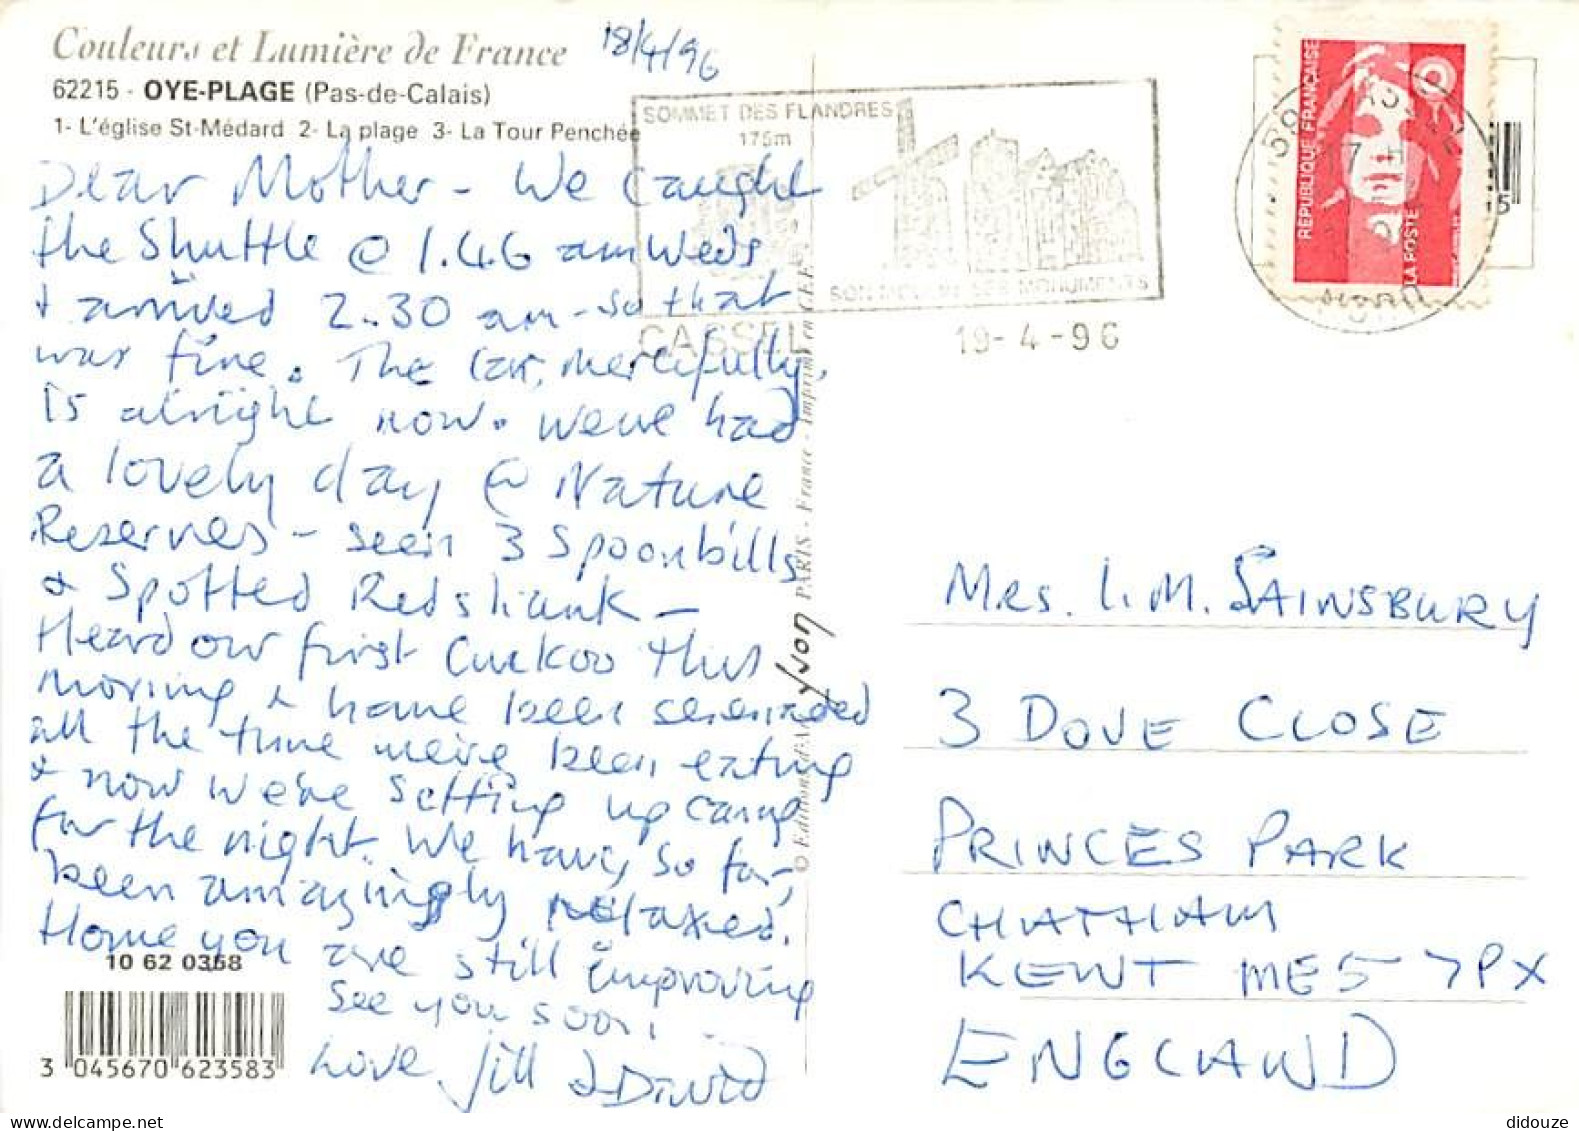 Couleurs et Lumière de France
18/4/96
62215 - OYE-PLAGE (Pas-de-Calais)
1- L'église St-Médard 2- La plage 3- La Tour Penchée
Dear Mother - We caught
the Shuttle @ 1.46 am Weds
+ arrived 2.30 am - so that
was fine. The car, mercifully,
is alright now. We've had
a lovely day @ Nature
Reserves - seen 3 Spoonbills
& Spotted Redshank -
Heard our first Cuckoo this
morning & have been serenaded
all the time we've been eating
& now we're setting up camp
for the night. We have, so far,
been amazingly relaxed.
Hope you are still improving
See you soon,
Love Jill & David
10 62 0358
3 045670 623583
© Editions d'Art Yvon PARIS - France - Imprimé en CEE
SOMMET DES FLANDRES
175m
SON MOULIN SES MONUMENTS
CASSEL
19-4-96
REPUBLIQUE FRANÇAISE
LA POSTE
Mrs. L. M. SAINSBURY
3 DOVE CLOSE
PRINCES PARK
CHATHAM
KENT ME5 7PX
ENGLAND
didouze